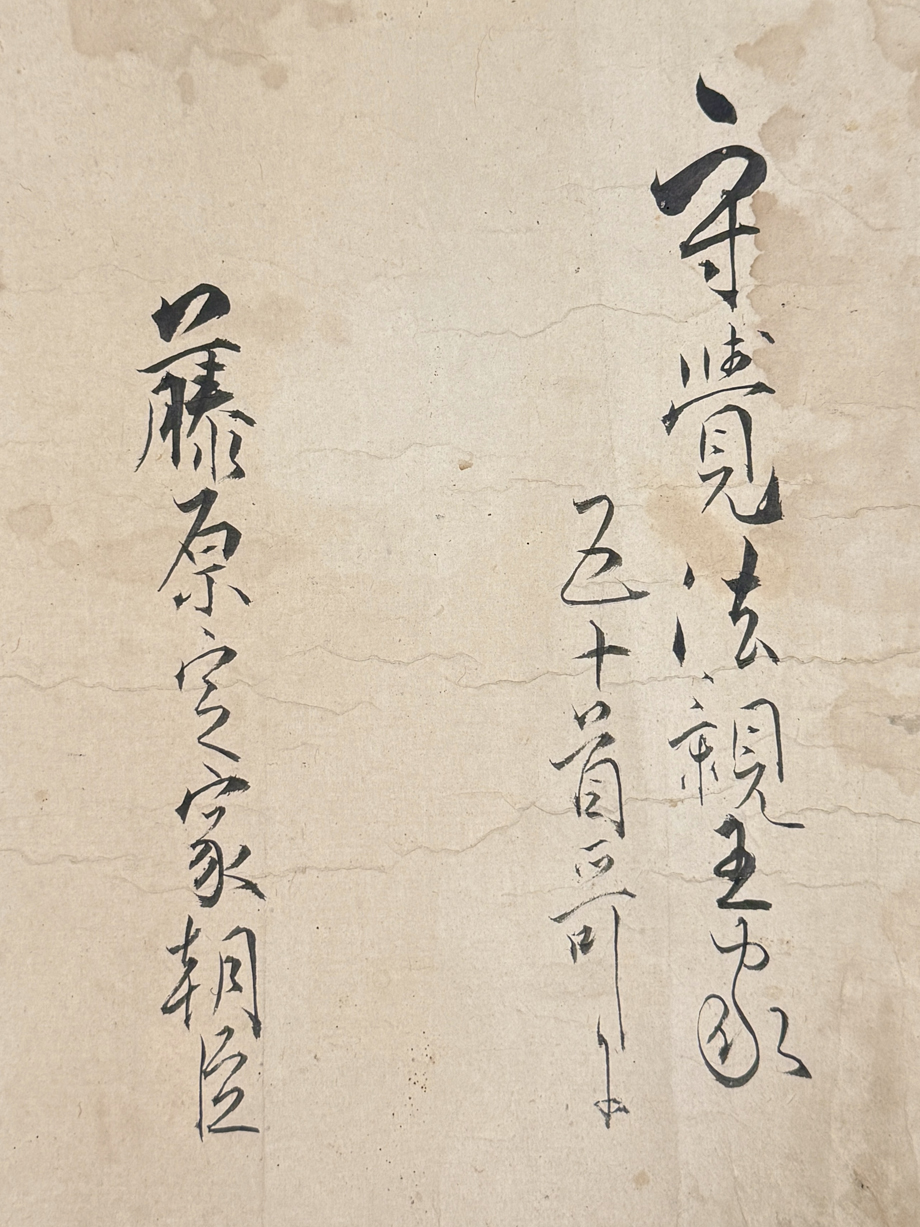 守覺法親王家
五十首哥
藤原定家朝臣